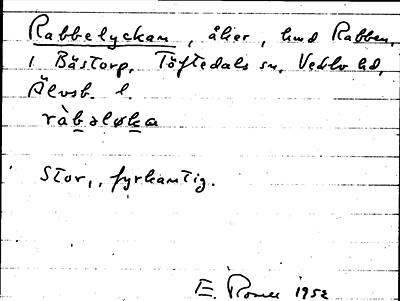 Rabbelyckan, åker, hmd Rabben,
i Båstorp, Töftedals sn, Vedbo hd,
Älvsb. l.
ràbəløka
Stor,, fyrkantig.
E. 1952